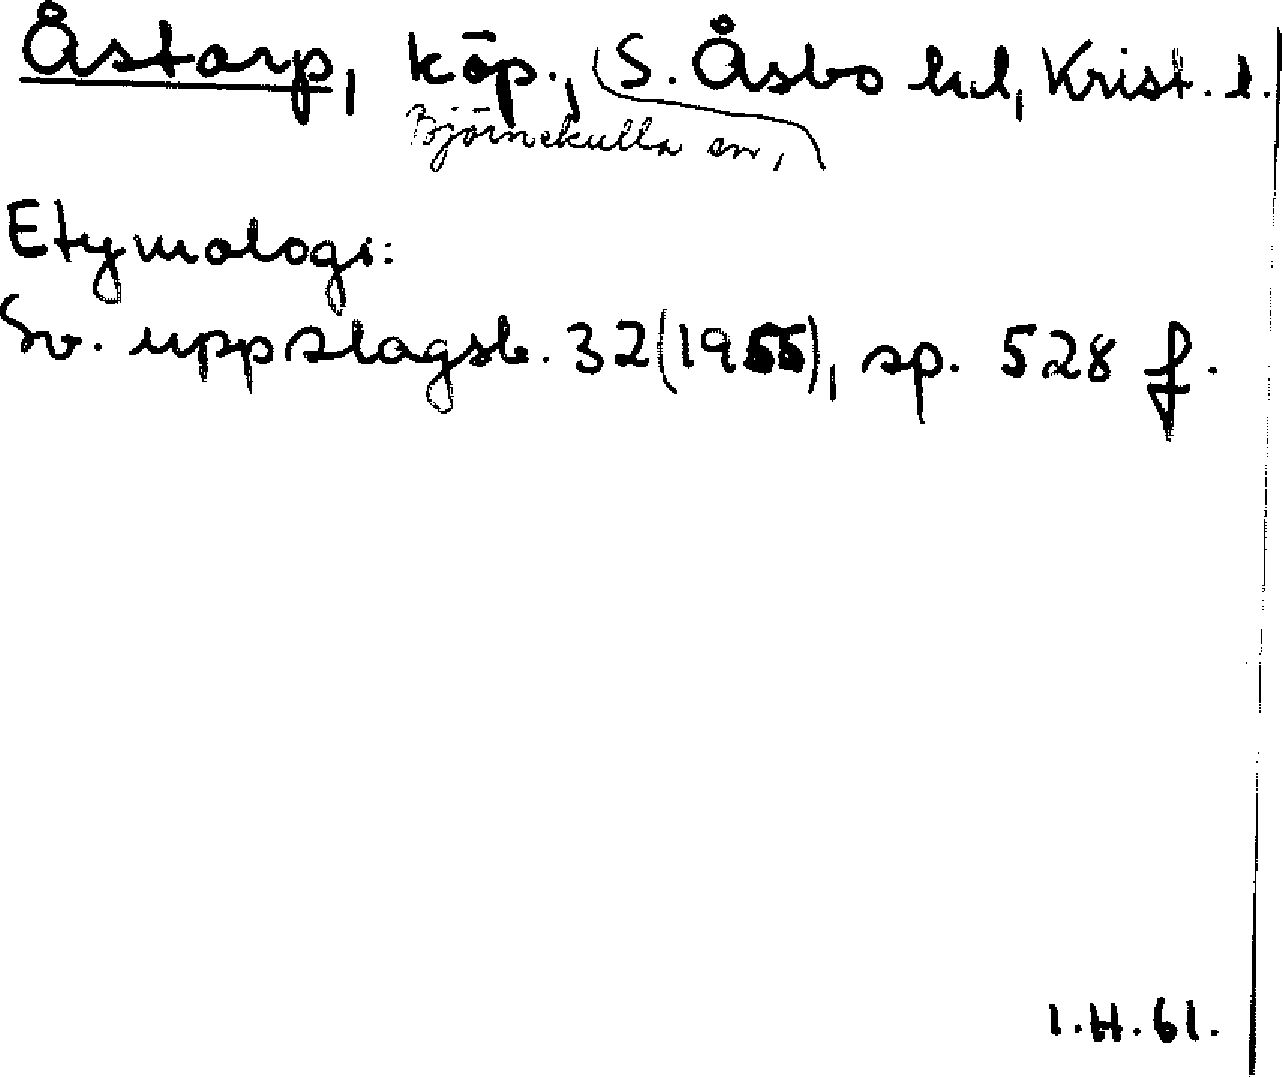 Åstarp, köp., S. Åsbo hd, Krist. l.
Björnekulla sn,
Etymologi:
Sv. uppslagsb. 32 (1955), sp. 528 f.
1.H.61.